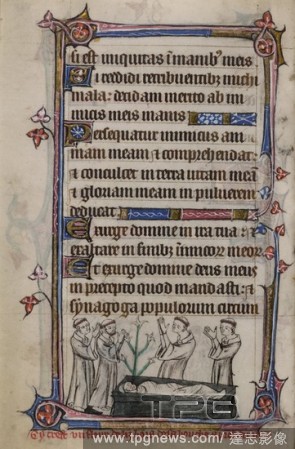 si est iniquitas ī manib' meis
Si reddidi retribuentibz michi
mala: decidam merito ab ini
micis meis inanis
Persequatur inimicus ani
mam meam & comprehendat:
& conculcet in terra uitam meā
& gloriam meam in puluerem
deducat
Exurge domine in ira tua: &
exaltare in finibz inimicor meor
Et exurge domine deus meus
in precepto quod mandasti: &
synagoga populorum circum
TPG
www.tpgnews.com/ 達志影像